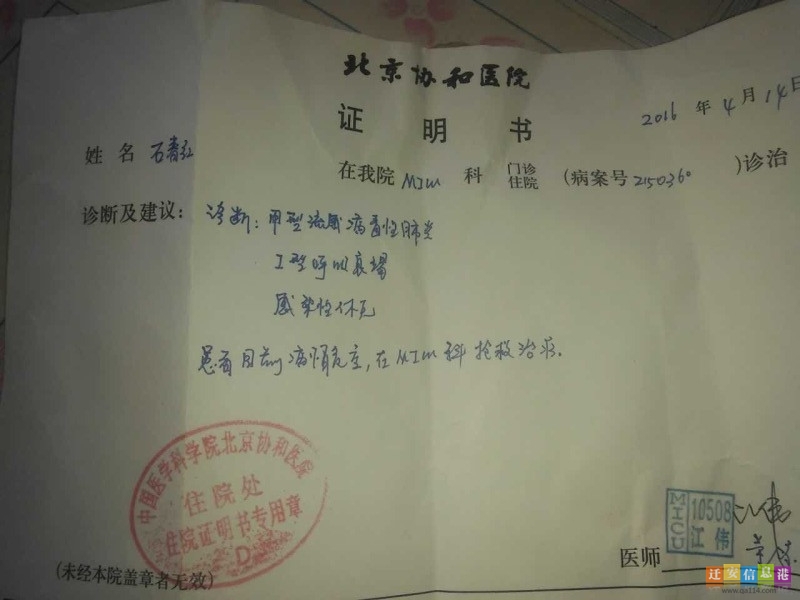 北京协和医院
证明书
2016 年 4 月 14 日
姓名 石青红
在我院 MICU 科 门诊 住院 (病案号 2150360 )诊治
诊断及建议: 诊断: 甲型流感病毒性肺炎
I型呼吸衰竭
感染性休克
患者目前病情危重,在MICU科抢救治疗.
中国医学科学院北京协和医院
住院处
住院证明书专用章
(未经本院盖章者无效)
医师
MICU
10508
江伟
江伟
迁安信息港
www.qa114.com